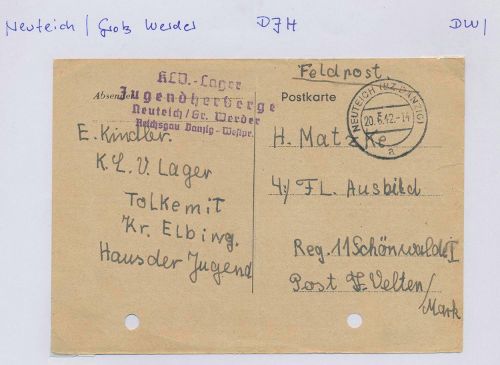 Neuteich / Groß Werder DJH DW1
KLV.-Lager
Jugendherberge
Neuteich/Gr. Werder
Reichsgau Danzig - Westpr.
Absender
E. Kindler.
K.L.V. Lager
Tolkemit
Kr. Elbing.
Haus der Jugend
Feldpost.
Postkarte
NEUTEICH (BZ DANZIG)
20.6.42.-14
a
H. Matzke
4/ FL. Ausbild
Reg. 11 Schönwalde I
Post Velten/
Mark